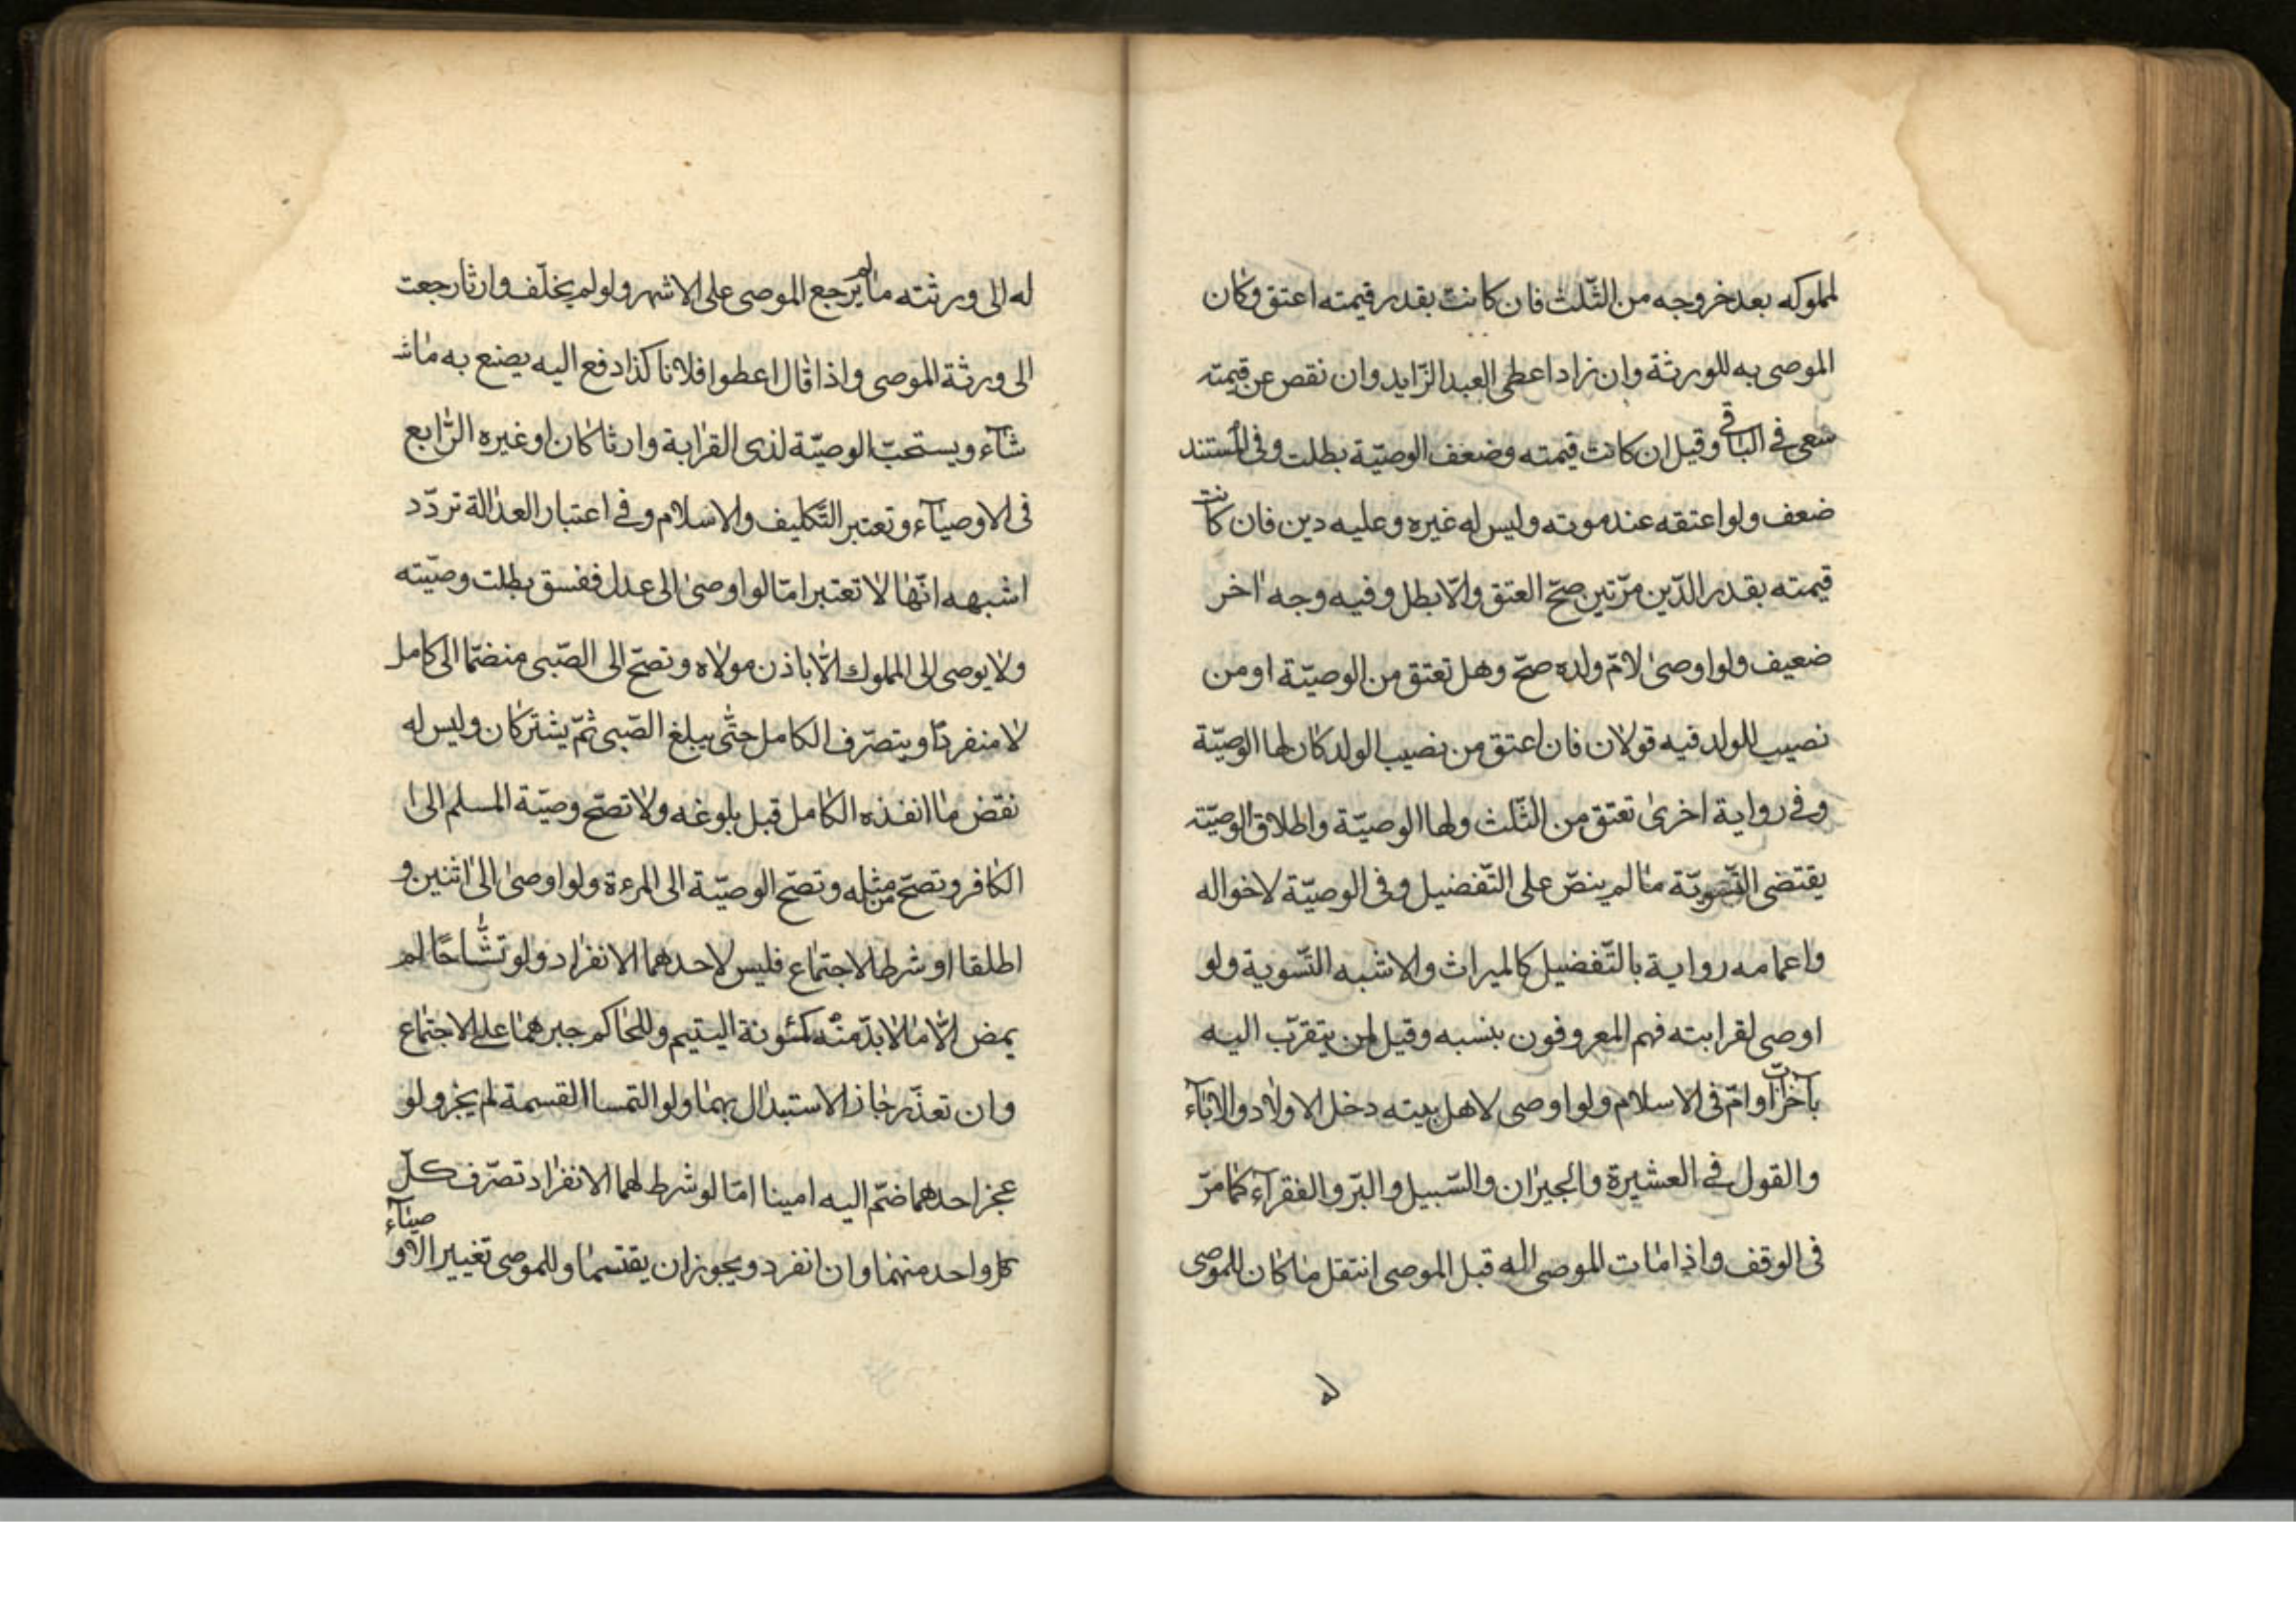 لمملوكه بعد خروجه من الثّلث فان كانت بقدر قيمته اعتق وكان
الموصى به للورثة وان زاد اعطى العبد الزّايد وان نقص عن قيمته
سعى فى الباقى وقيل ان كانت قيمته وضعف الوصيّة بطلت وفى المستند
ضعف ولو اعتقه عند موته وليس له غيره وعليه دين فان كانت
قيمته بقدر الدّين مرّتين صحّ العتق والّا بطل وفيه وجه اخر
ضعيف ولو اوصى لامّ ولده صحّ وهل تعتق من الوصيّة او من
نصيب الولد فيه قولان فان اعتق من نصيب الولد كان لها الوصيّة
وفى رواية اخرى تعتق من الثّلث ولها الوصيّة واطلاق الوصيّة
يقتضى التّسويّة ما لم ينصّ على التّفضيل وفى الوصيّة لاخواله
واعمامه رواية بالتّفضيل كالميراث والاشبه التّسوية ولو
اوصى لقرابته فهم المعروفون بنسبه وقيل لمن يتقرّب اليه
بآخر اب وامّ فى الاسلام ولو اوصى لاهل بيته دخل الاولاد والاباء
والقول فى العشيرة والجيران والسّبيل والبرّ والفقرآء كما مرّ
فى الوقف واذا مات الموصى له قبل الموصى انتقل ما كان للموصى
له
له الى ورثته ما لم يرجع الموصى على الاشهر ولو لم يخلّف وارثا رجعت
الى ورثة الموصى واذا قال اعطوا فلانا كذا دفع اليه يصنع به ماشـ
شآء ويستحبّ الوصيّة لذى القرابة وارثا كان او غيره الرّابع
فى الاوصيآء وتعتبر التّكليف والاسلام وفى اعتبار العدالة تردّد
اشبهه انّها لا تعتبر امّا لو اوصى الى عدل ففسق بطلت وصيّته
ولا يوصى الى المملوك الّا باذن مولاه وتصحّ الى الصّبى منضمّا الى كامل
لا منفردا ويتصرّف الكامل حتّى يبلغ الصّبى ثمّ يشتركان وليس له
نقض ما انفذه الكامل قبل بلوغه ولا تصحّ وصيّة المسلم الى ا
الكافر وتصحّ من مثله وتصحّ الوصيّة الى المرءة ولو اوصى الى اثنين و
اطلقا او شرط الاجتماع فليس لاحدهما الانفراد ولو تشّاحّا لم
يمض الّا ما لا بدّ منه كمئونة اليتيم وللحاكم جبرهما على الاجتماع
وان تعذّر جاز الاستبدال بهما ولو التمسا القسمة لم يجز ولو
عجز احدهما ضمّ اليه امينا امّا لو شرط لهما الانفراد تصرّف كلّ
كل واحد منهما وان انفرد ويجوز ان يقتسما وللموصى تغيير الاوصيآء